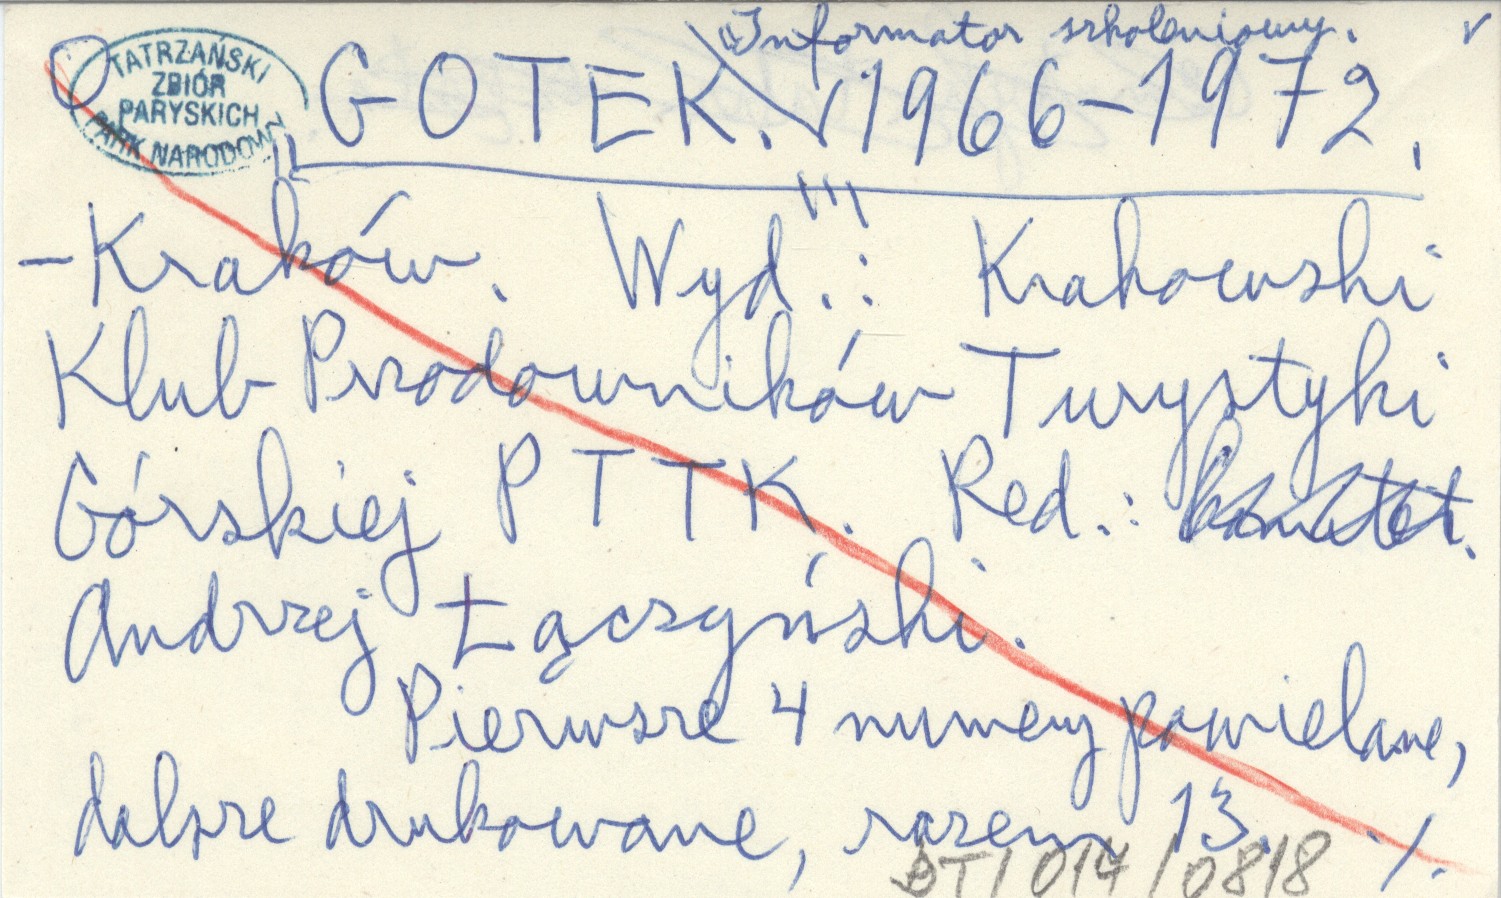 „Informator szkoleniowy.
TATRZAŃSKI
ZBIÓR
PARYSKICH
PARK NARODOWY
GOTEK. 1966-1972.
-Kraków. Wyd.: Krakowski
Klub Przodowników Turystyki
Górskiej PTTK. Red.:
Andrzej Łączyński.
Pierwsze 4 numery powielane,
dalsze drukowane, razem 13. ./.
BT/017/0818